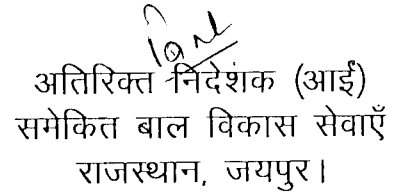 अतिरिक्त निदेशक (आई)
समेकित बाल विकास सेवाएँ
राजस्थान, जयपुर।